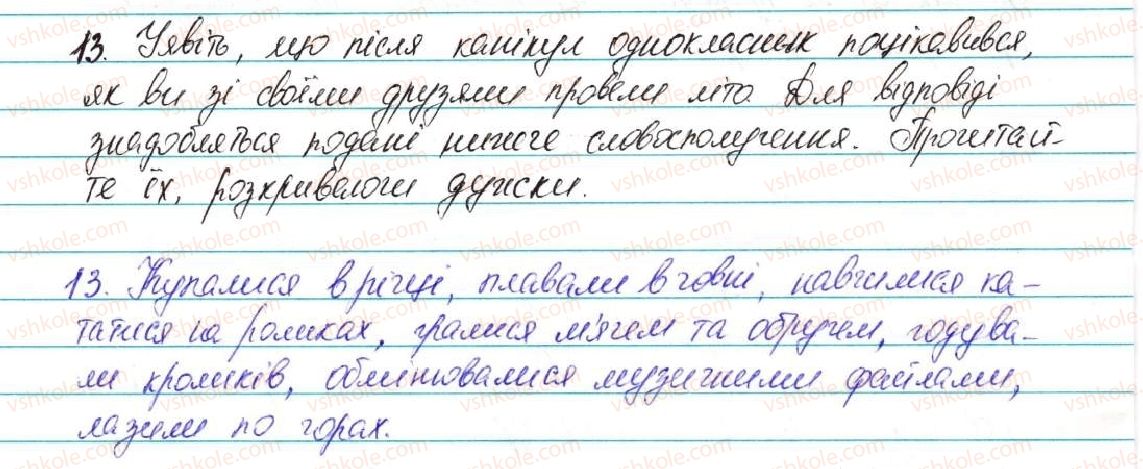 13. Уявіть, що після канікул однокласник поцікавився,
як ви зі своїми друзями провели літо. Для відповіді
знадобляться подані нижче словосполучення. Прочитай-
те їх, розкриваючи дужки.
13. Купалися в річці, плавали в човні, навчилися ка-
татися на роликах, гралися м'ячем та обручем, годува-
ли кроликів, обмінювалися музичними файлами,
лазили по горах.